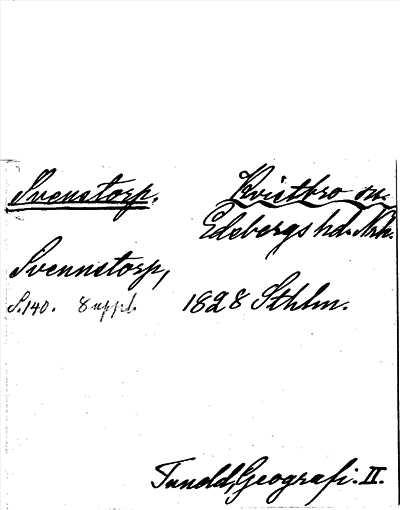 Svenstorp. Kvistbro sn.
Edsbergs hd. Nrk.
Svennstorp,
S. 140. 8 uppl. 1828 Sthlm.
Tuneld, Geografi. II.